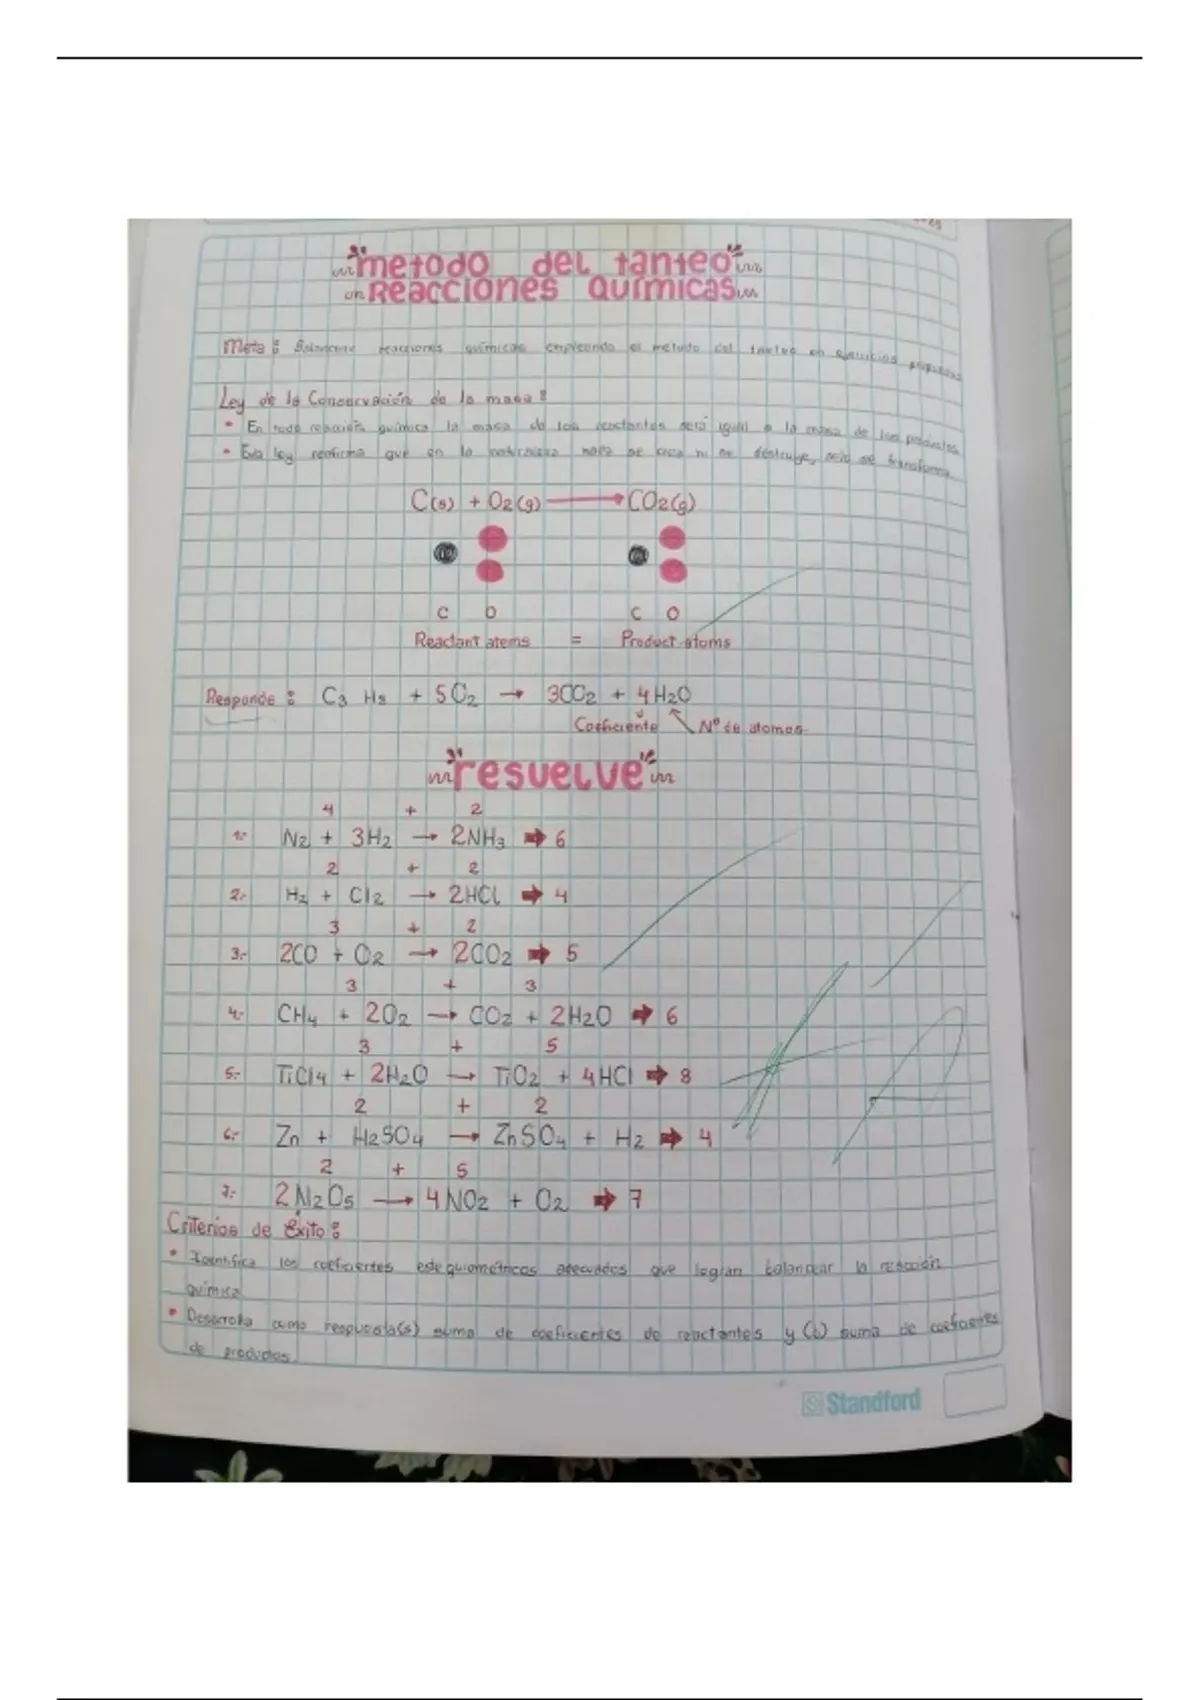 metodo del tanteo
Reacciones Químicas
Meta: Balancear reacciones químicas empleando el metodo del tanteo en ejercicios propuestos
Ley de la Conservación de la masa:
• En toda reacción química la masa de los reactantes será igual a la masa de los productos
• Esta ley reafirma que en la naturaleza nada se crea ni se destruye, solo se transforma
C(s) + O2(g) → CO2(g)
C O C O
Reactant atems = Product atoms
Responde: C3 H8 + 5O2 → 3CO2 + 4H2O
Coeficiente Nº de atomos
resuelve
4 + 2
1.- N2 + 3H2 → 2NH3 ➡ 6
2 + 2
2.- H2 + Cl2 → 2HCl ➡ 4
3 + 2
3.- 2CO + O2 → 2CO2 ➡ 5
3 + 3
4.- CH4 + 2O2 → CO2 + 2H2O ➡ 6
3 + 5
5.- TiCl4 + 2H2O → TiO2 + 4HCl ➡ 8
2 + 2
6.- Zn + H2SO4 → ZnSO4 + H2 ➡ 4
2 + 5
7.- 2N2O5 → 4NO2 + O2 ➡ 7
Criterios de Éxito:
• Identifica los coeficientes estequiométricos adecuados que logran balancear la reacción
química
• Desarrolla como respuesta(s) suma de coeficientes de reactantes y (b) suma de coeficientes
de productos.
Standford